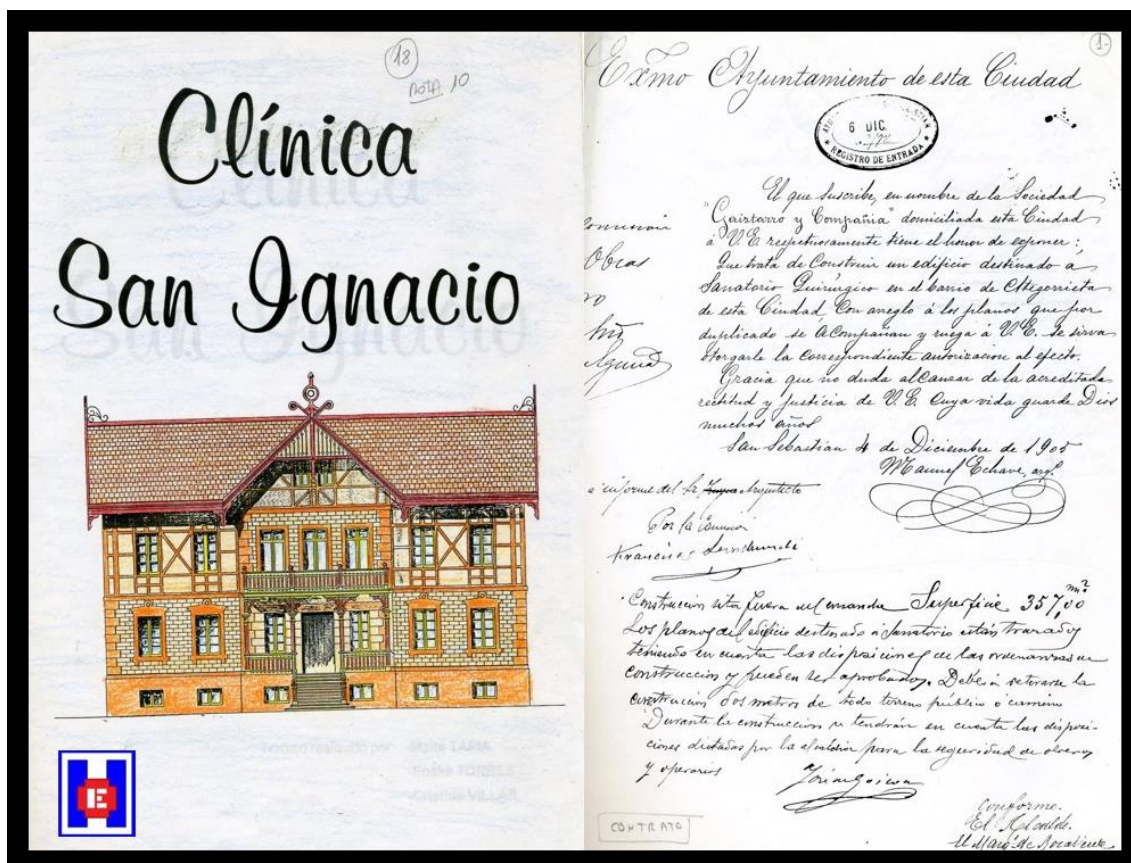 18
NOTA 10
Clínica
San Ignacio
E
1-
Exmo Ayuntamiento de esta Ciudad
6 DIC.
REGISTRO DE ENTRADA
El que suscribe, en nombre de la Sociedad
"Gaiztarro y Compañia" domiciliada esta Ciudad
á V.E. respetuosamente tiene el honor de exponer:
Que trata de Construir un edificio destinado á
Sanatorio Quirúrgico en el barrio de Ategorrieta
de esta Ciudad, Con arreglo á los planos que por
duplicado se acompañan y ruega á V.E. se sirva
otorgarle la correspondiente autorizacion al efecto.
Gracia que no duda alcanzar de la acreditada
rectitud y justicia de V.E. cuya vida guarde Dios
muchos años
San Sebastian 4 de Diciembre de 1905
Manuel Echave, arqt.
Obras
informe del Sr Arquitecto
Por la
Francisco
Construccion sita fuera del ensanche Superficie 357,00 m²
Los planos del edificio destinado á Sanatorio están trazados
teniendo en cuenta las disposiciones de las ordenanzas de
construccion y pueden ser aprobados. Deberá retirarse la
construccion dos metros de todo terreno público o camino
Durante la construccion se tendrán en cuenta las disposi-
ciones dictadas por la alcaldia para la seguridad de obreros
y operarios
José Goicoa
Conforme.
El Alcalde.
El Marqs de Rocaverde
CONTRATO